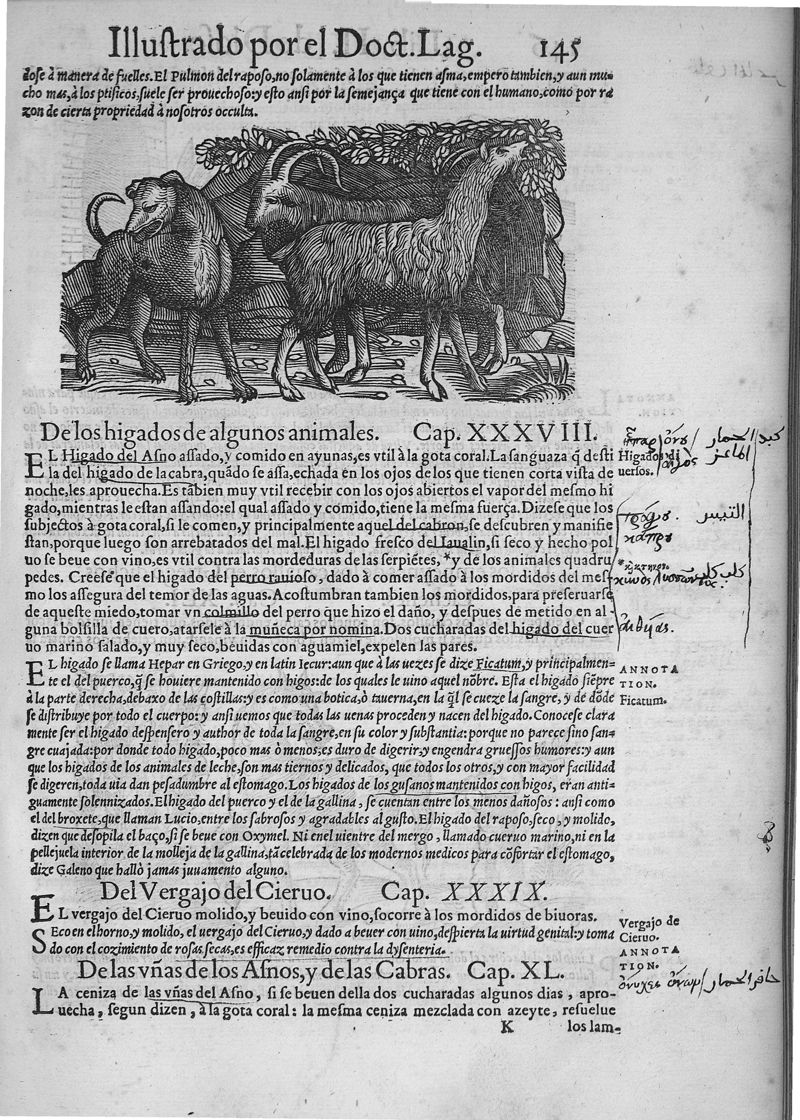 Illustrado por el Doct. Lag. 145
dose à manera de fuelles. El Pulmon del raposo, no solamente à los que tienen asma, empero tambien, y aun mu-
cho mas, à los ptisicos, suele ser prouechoso: y esto ansi por la semejança que tiene con el humano, como por ra
zon de cierta propriedad à nosotros occulta.
De los higados de algunos animales. Cap. XXXVIII.
EL Higado del Asno assado, y comido en ayunas, es vtil à la gota coral. La sanguaza q̃ desti
la del higado de la cabra, quãdo se assa, echada en los ojos de los que tienen corta vista de
noche, les aprouecha. Es tãbien muy vtil recebir con los ojos abiertos el vapor del mesmo hi
gado, mientras le estan assando: el qual assado y comido, tiene la mesma fuerça. Dizese que los
subjectos à gota coral, si le comen, y principalmente aquel del cabron, se descubren y manifie
stan, porque luego son arrebatados del mal. El higado fresco del Iaualin, si seco y hecho pol
uo se beue con vino, es vtil contra las mordeduras de las serpiétes, *y de los animales quadru
pedes. Creese que el higado del perro rauioso, dado à comer assado à los mordidos del mes
mo los assegura del temor de las aguas. Acostumbran tambien los mordidos, para preseruarse
de aqueste miedo, tomar vn colmillo del perro que hizo el daño, y despues de metido en al
guna bolsilla de cuero, atarsele à la muñeca por nomina. Dos cucharadas del higado del cuer
uo marino salado, y muy seco, beuidas con aguamiel, expelen las pares.
Higado di
uersos.
كبد الحمار
الماعز
التيس
EL higado se llama Hepar en Griego, y en latin Iecur: aun que à las uezes se dize Ficatum, y principalmen-
te el del puerco, q̃ se houiere mantenido con higos: de los quales le uino aquel nõbre. Esta el higado siẽpre
à la parte derecha, debaxo de las costillas: y es como una botica, ò tauerna, en la q̃l se cueze la sangre, y de dõde
se distribuye por todo el cuerpo: y ansi uemos que todas las uenas proceden y nacen del higado. Conocese clara
mente ser el higado despensero y author de toda la sangre, en su color y substantia: porque no parece sino san-
gre cuajada: por donde todo higado, poco mas ò menos, es duro de digerir, y engendra gruessos humores: y aun
que los higados de los animales de leche, son mas tiernos y delicados, que todos los otros, y con mayor facilidad
se digeren, toda uia dan pesadumbre al estomago. Los higados de los gusanos mantenidos con higos, eran anti-
guamente solennizados. El higado del puerco y el de la gallina, se cuentan entre los menos dañosos: ansi como
el del broxete, que llaman Lucio, entre los sabrosos y agradables al gusto. El higado del raposo, seco, y molido,
dizen que desopila el baço, si se beue con Oxymel. Ni en el uientre del mergo, llamado cueruo marino, ni en la
pellejuela interior de la molleja de la gallina, tã celebrada de los modernos medicos para cõfortar el estomago,
dize Galeno que hallò jamas juuamento alguno.
ANNOTA
TION.
Ficatum.
Del Vergajo del Cieruo. Cap. XXXIX.
EL vergajo del Cieruo molido, y beuido con vino, socorre à los mordidos de biuoras.
SEco en el horno, y molido, el uergajo del Cieruo, y dado a beuer con uino, despierta la uirtud genital: y toma
do con el cozimiento de rosas secas, es efficaz remedio contra la dysenteria.
Vergajo de
Cieruo.
ANNOTA
TION.
De las vñas de los Asnos, y de las Cabras. Cap. XL.
LA ceniza de las vñas del Asno, si se beuen della dos cucharadas algunos dias, apro-
uecha, segun dizen, à la gota coral: la mesma ceniza mezclada con azeyte, resuelue
حافر الحمار
K los lam-